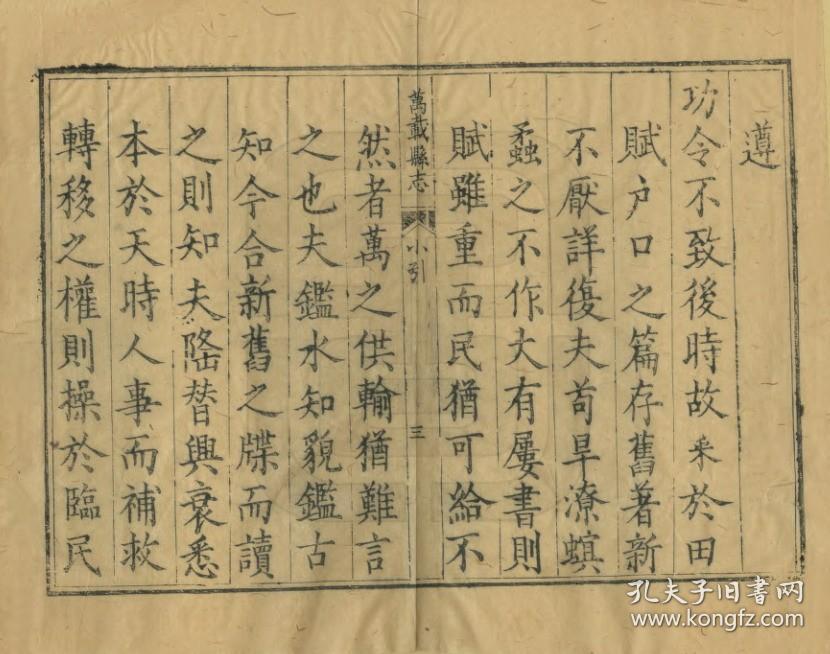 遵
功令不致後時故釆於田
賦户口之篇存舊著新
不厭詳復夫苟旱潦螟
蟊之不作大有屢書則
賦雖重而民猶可給不
萬載縣志 小引 三
然者萬之供輸猶難言
之也夫鑑水知貌鑑古
知今合新舊之牒而讀
之則知夫隆替興衰悉
本於天時人事而補救
轉移之權則操於臨民
孔夫子旧书网
www.kongfz.com